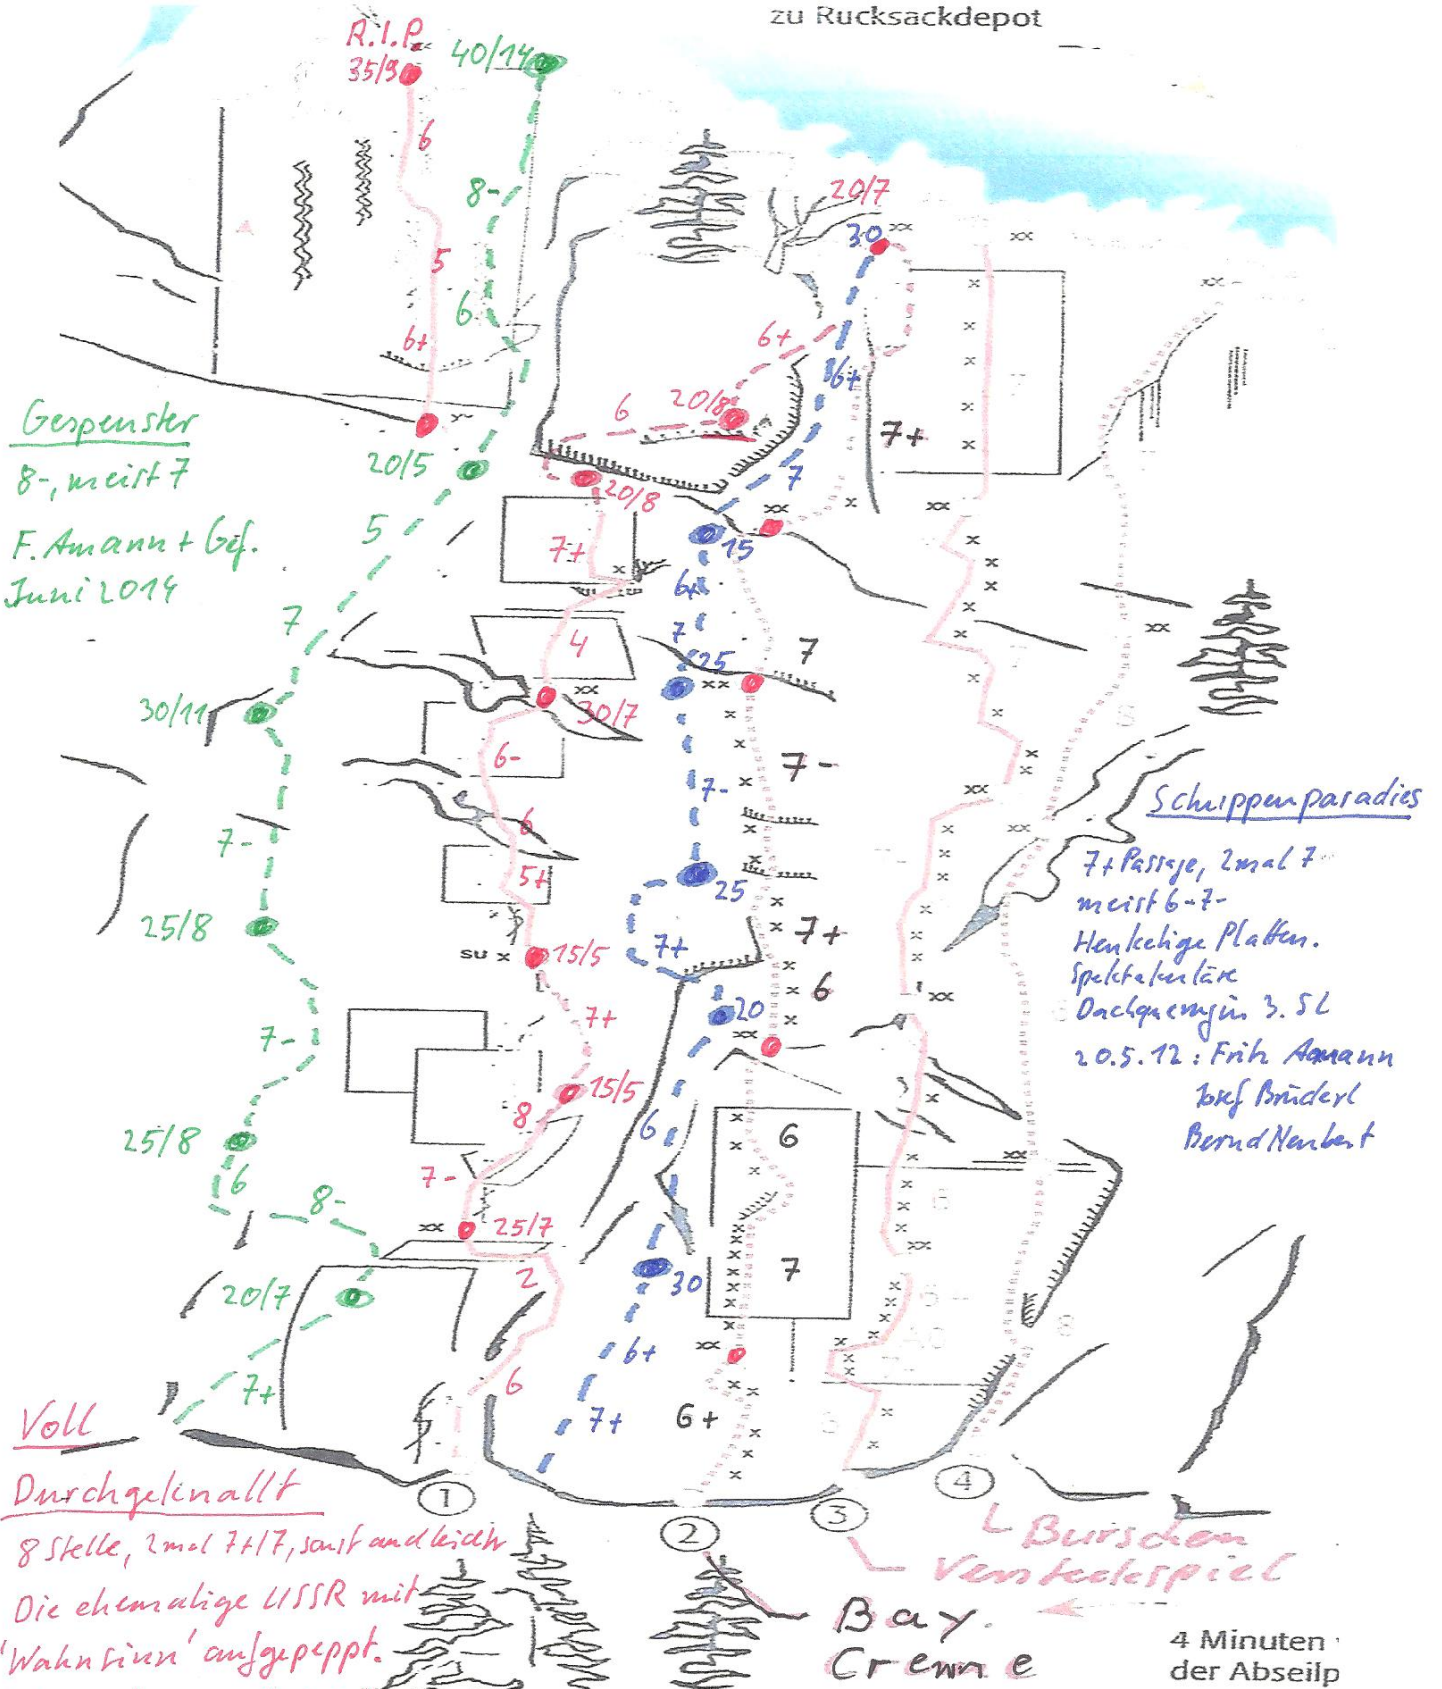 zu Rucksackdepot
R.I.P.
35/9
40/14
6
8-
5
6
6+
20/7
30
6+
6+
7
20/8
6
7+
20/8
Gespenster
8-, meist 7
F. Amann + Gef.
Juni 2014
20/5
5
7
30/11
7-
25/8
7-
25/8
6
8-
20/7
7+
7+
4
30/7
6-
6
5+
su x
15/5
7+
15/5
8
7-
25/7
2
6
15
6+
7
25
7-
25
7+
20
6
30
6+
7+
7+
7
7-
7+
6
6
7
6+
Schuppenparadies
7+ Passage, 2mal 7-
meist 6-7-
Henkelige Platten.
Spektakuläre
Dachquerung in 3. SL
20.5.12: Fritz Amann
Josef Brüderl
Bernd Neubert
Voll
Durchgeknallt
8 Stelle, 2mal 7+/7, sonst
Die ehemalige USSR mit
'Wahnsinn' aufgepeppt.
1
2
3
4
Burschen
Versteckspiel
Bay.
Creme
4 Minuten
der Abseilp